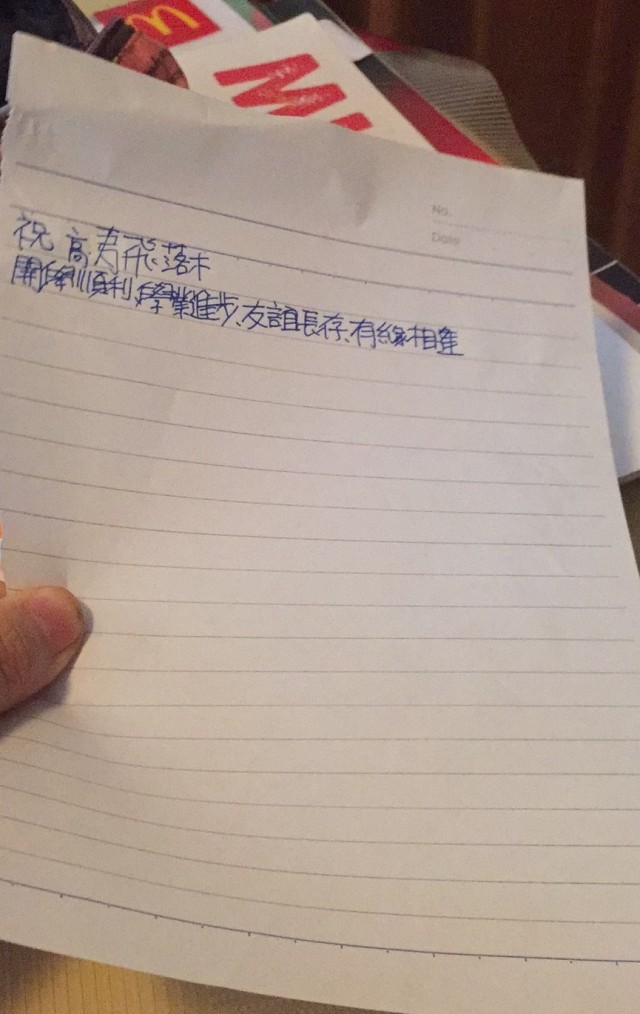 No.
Date
祝 高 飛 落木
開學順利、學業進步、友誼長存、有緣相